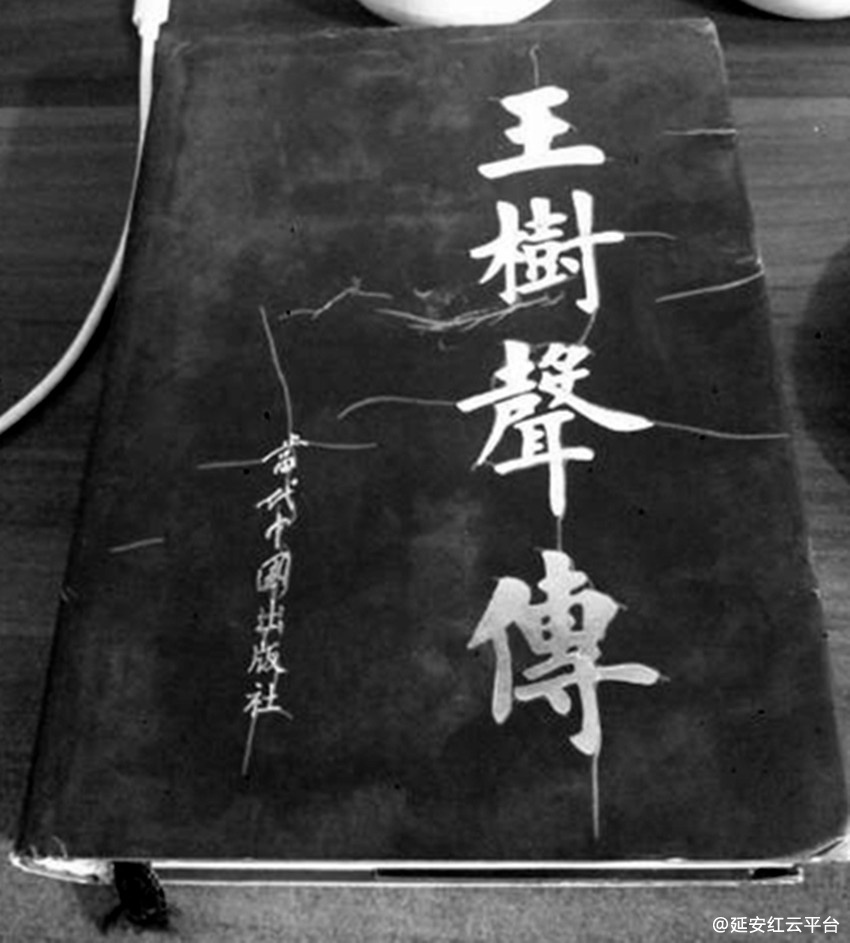 王樹聲傳
當代中國出版社
@延安红云平台